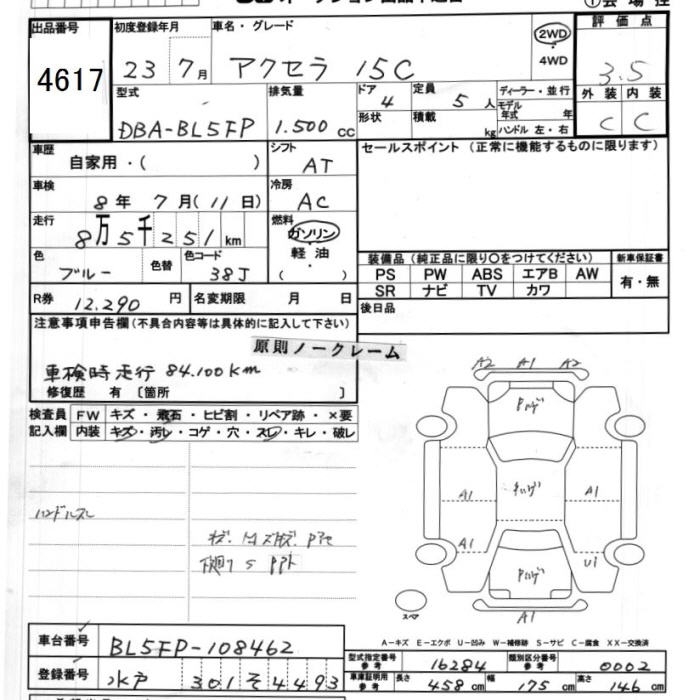 ①会場控
出品番号 初度登録年月 車名・グレード 2WD 評価点
4617 23 7月 アクセラ 15C 4WD 3.5
型式 排気量 ドア 4 定員 5人 ディーラー・並行 外装 内装
DBA-BL5FP 1.500cc 形状 積載 kg モデル年式 年 C C
ハンドル 左・右
車歴 シフト セールスポイント (正常に機能するものに限ります)
自家用・( ) AT
車検 冷房
8年 7月(11日) AC
走行 燃料
8万5千251km ガソリン
軽油
( )
色 色替 色コード 装備品 (純正品に限り○をつけてください) 新車保証書
ブルー 38J PS PW ABS エアB AW 有・無
SR ナビ TV カワ
R券 12.290円 名変期限 月 日 後日品
注意事項申告欄(不具合内容等は具体的に記入して下さい)
原則ノークレーム
車検時走行 84.100Km
修復歴 有 [箇所 ]
検査員 FW キズ・飛石・ヒビ割・リペア跡・×要
記入欄 内装 キズ・汚レ・コゲ・穴・スレ・キレ・破レ
A2 A1 A2
A1 A1
A1 U1
ハンドルスレ
スペア
A1
A-キズ E-エクボ U-凹み W-補修跡 S-サビ C-腐食 XX-交換済
車台番号 BL5FP-108462
型式指定番号 参考 16284 類別区分番号 参考 0002
登録番号 水戸 301 そ 4493
車庫証明用 参考 長さ 458cm 幅 175cm 高さ 146cm